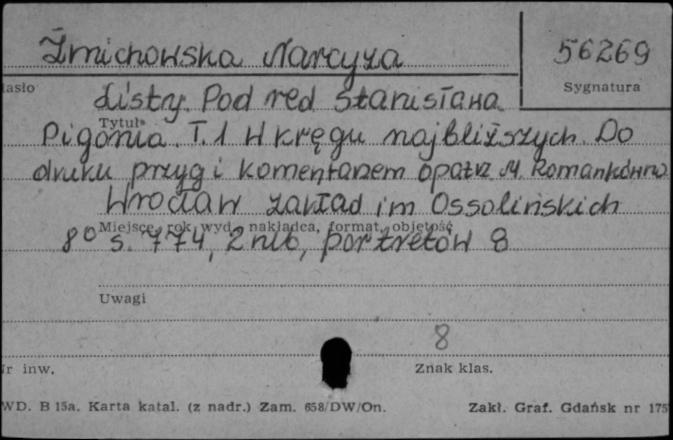 Żmichowska Narcyza
56269
Sygnatura
asło
Listy. Pod red Stanisława
Tytuł
Pigonia. T.1 W kręgu najbliższych. Do
druku przyg i komentarzem opatrz. M. Romankówna
Wrocław zakład im Ossolińskich
Miejsce, rok wyd., nakładca, format, objętość
8° s. 774, 2 nlb, portretów 8
Uwagi
8
r inw.
Znak klas.
WD. B 15a. Karta katal. (z nadr.) Zam. 658/DW/On.
Zakł. Graf. Gdańsk nr 175